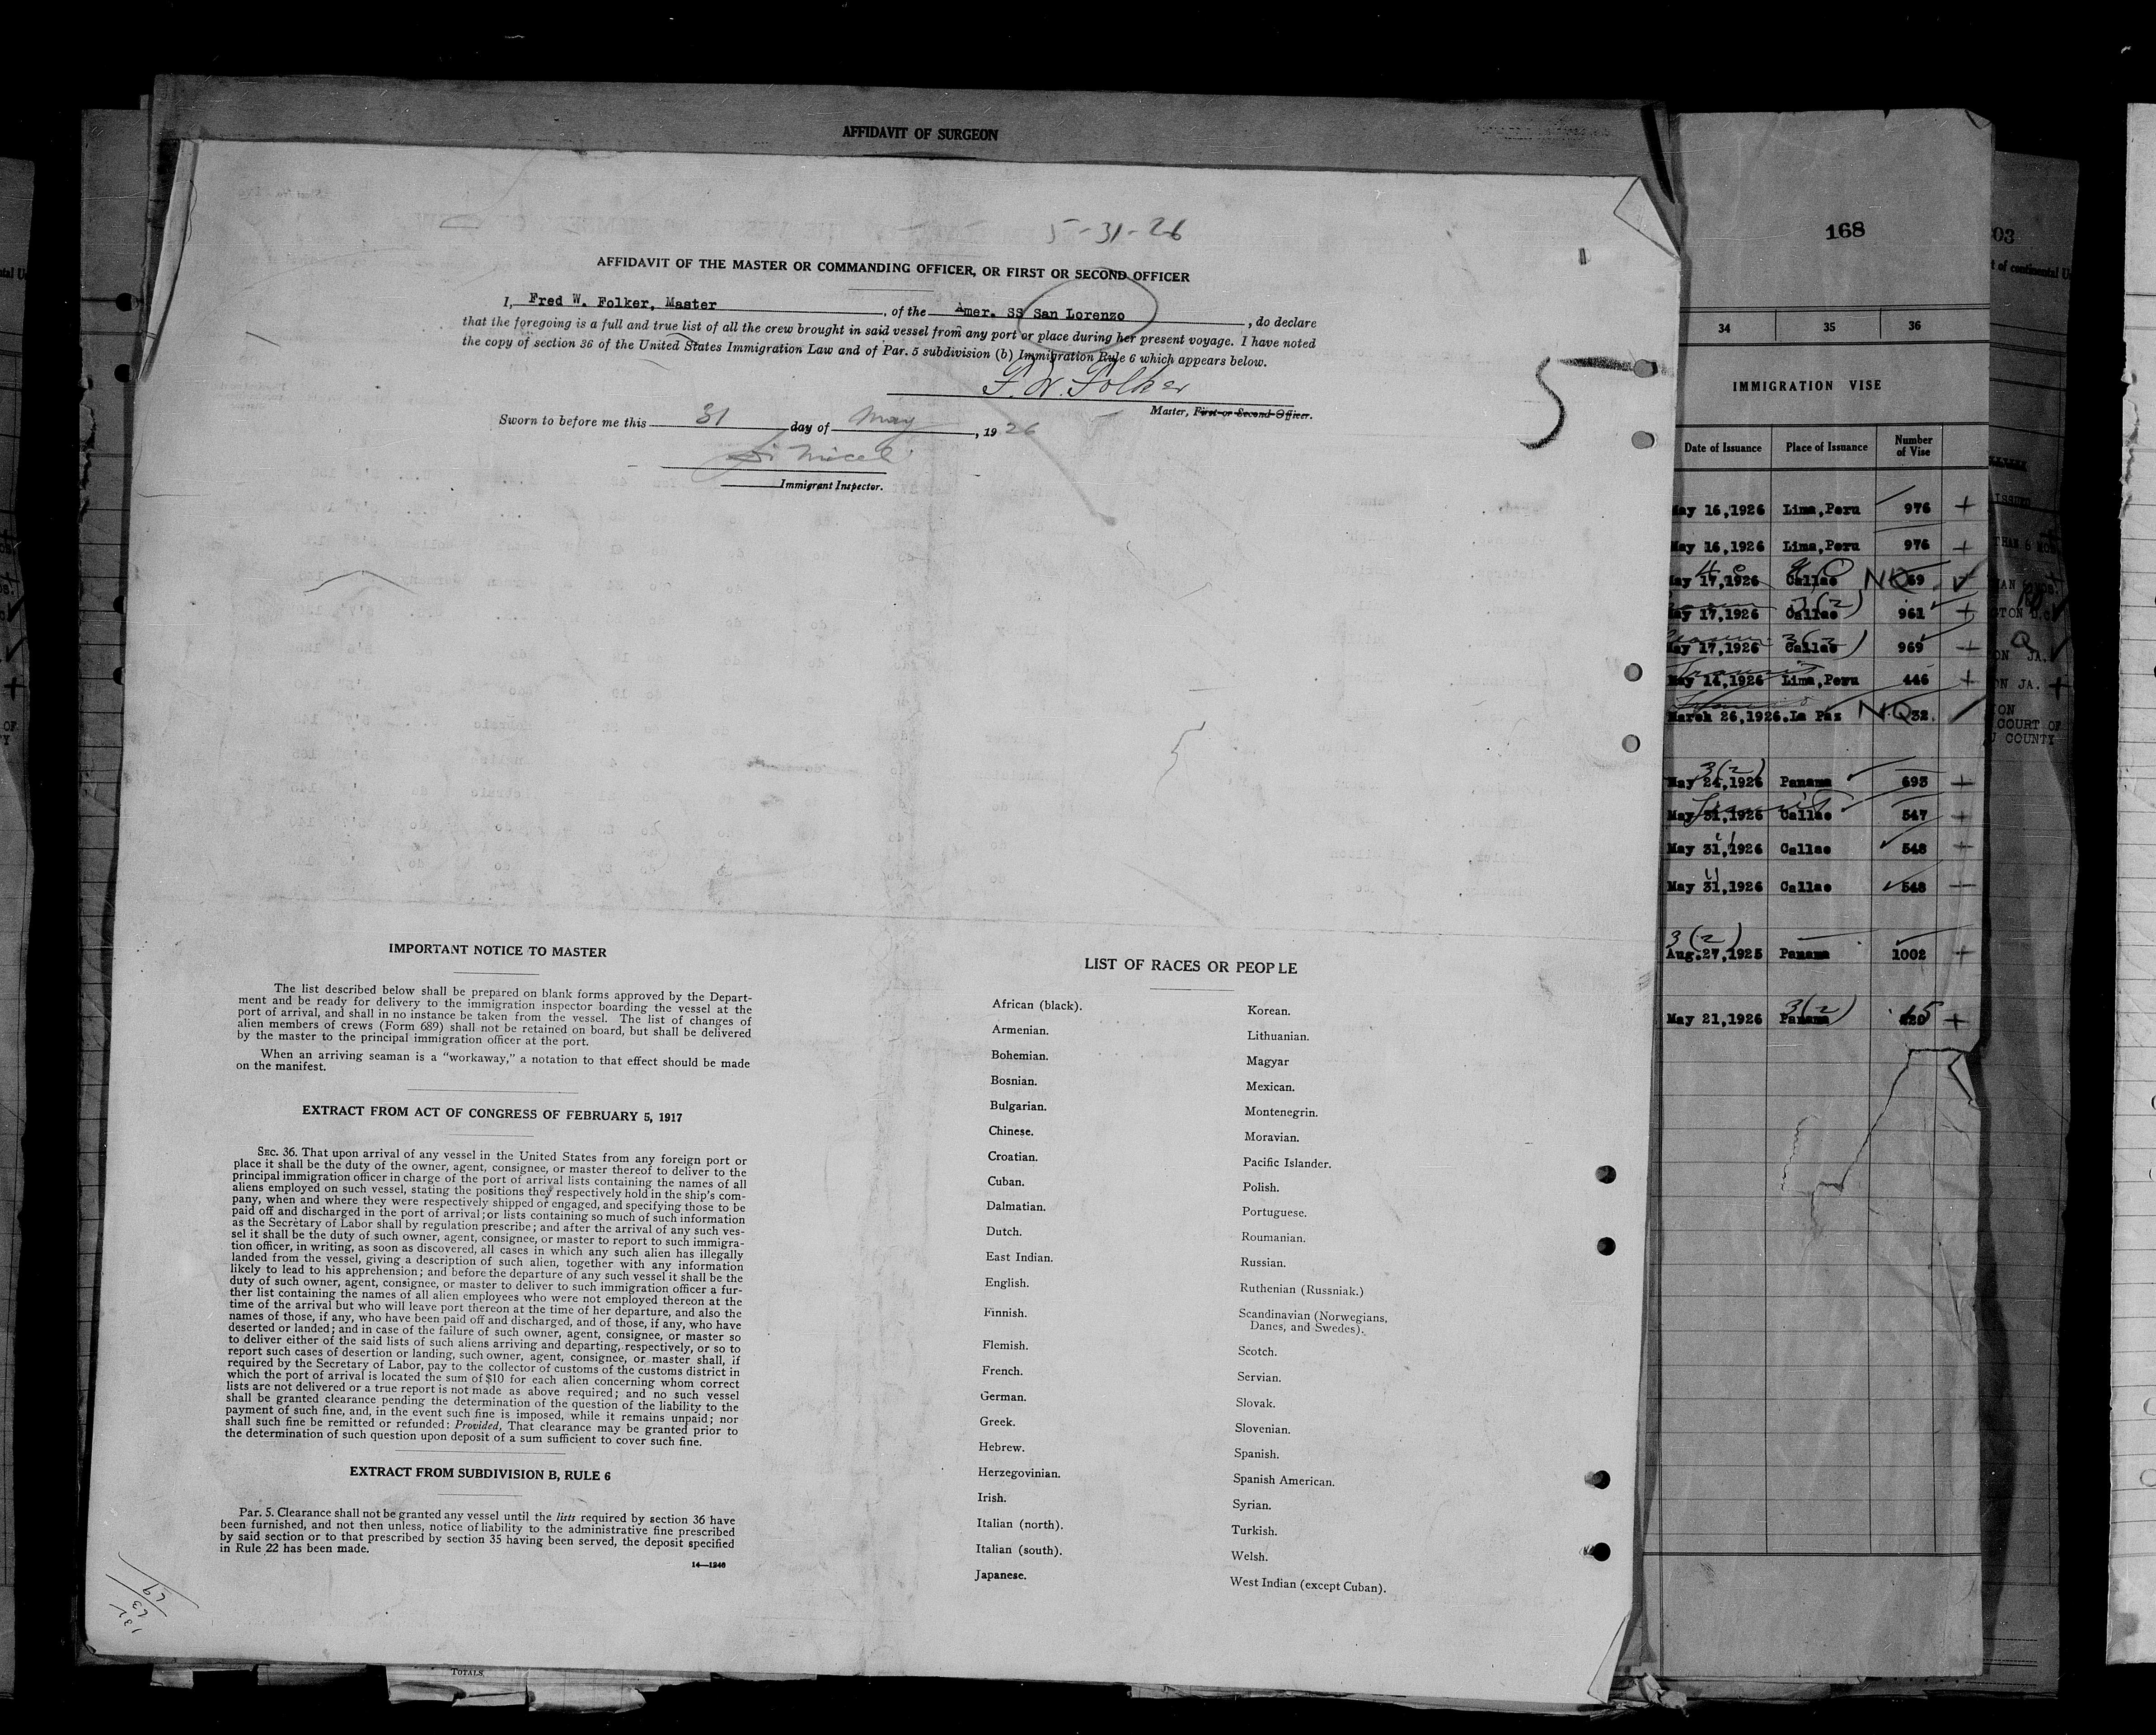 AFFIDAVIT OF SURGEON
5-31-26
AFFIDAVIT OF THE MASTER OR COMMANDING OFFICER, OR FIRST OR SECOND OFFICER
I, Fred W. Folker, Master, of the Amer. SS San Lorenzo, do declare
that the foregoing is a full and true list of all the crew brought in said vessel from any port or place during her present voyage. I have noted
the copy of section 36 of the United States Immigration Law and of Par. 5 subdivision (b) Immigration Rule 6 which appears below.
F. W. Folker
Master, First or Second Officer.
Sworn to before me this 31 day of May, 1926
Immigrant Inspector.
5
5
IMPORTANT NOTICE TO MASTER
The list described below shall be prepared on blank forms approved by the Depart-
ment and be ready for delivery to the immigration inspector boarding the vessel at the
port of arrival, and shall in no instance be taken from the vessel. The list of changes of
alien members of crews (Form 689) shall not be retained on board, but shall be delivered
by the master to the principal immigration officer at the port.
When an arriving seaman is a "workaway," a notation to that effect should be made
on the manifest.
EXTRACT FROM ACT OF CONGRESS OF FEBRUARY 5, 1917
SEC. 36. That upon arrival of any vessel in the United States from any foreign port or
place it shall be the duty of the owner, agent, consignee, or master thereof to deliver to the
principal immigration officer in charge of the port of arrival lists containing the names of all
aliens employed on such vessel, stating the positions they respectively hold in the ship's com-
pany, when and where they were respectively shipped or engaged, and specifying those to be
paid off and discharged in the port of arrival; or lists containing so much of such information
as the Secretary of Labor shall by regulation prescribe; and after the arrival of any such ves-
sel it shall be the duty of such owner, agent, consignee, or master to report to such immigra-
tion officer, in writing, as soon as discovered, all cases in which any such alien has illegally
landed from the vessel, giving a description of such alien, together with any information
likely to lead to his apprehension; and before the departure of any such vessel it shall be the
duty of such owner, agent, consignee, or master to deliver to such immigration officer a fur-
ther list containing the names of all alien employees who were not employed thereon at the
time of the arrival but who will leave port thereon at the time of her departure, and also the
names of those, if any, who have been paid off and discharged, and of those, if any, who have
deserted or landed; and in case of the failure of such owner, agent, consignee, or master so
to deliver either of the said lists of such aliens arriving and departing, respectively, or so to
report such cases of desertion or landing, such owner, agent, consignee, or master shall, if
required by the Secretary of Labor, pay to the collector of customs of the customs district in
which the port of arrival is located the sum of $10 for each alien concerning whom correct
lists are not delivered or a true report is not made as above required; and no such vessel
shall be granted clearance pending the determination of the question of the liability to the
payment of such fine, and, in the event such fine is imposed, while it remains unpaid; nor
shall such fine be remitted or refunded: Provided, That clearance may be granted prior to
the determination of such question upon deposit of a sum sufficient to cover such fine.
EXTRACT FROM SUBDIVISION B, RULE 6
Par. 5. Clearance shall not be granted any vessel until the lists required by section 36 have
been furnished, and not then unless, notice of liability to the administrative fine prescribed
by said section or to that prescribed by section 35 having been served, the deposit specified
in Rule 22 has been made.
14—1240
LIST OF RACES OR PEOPLE
African (black).
Armenian.
Bohemian.
Bosnian.
Bulgarian.
Chinese.
Croatian.
Cuban.
Dalmatian.
Dutch.
East Indian.
English.
Finnish.
Flemish.
French.
German.
Greek.
Hebrew.
Herzegovinian.
Irish.
Italian (north).
Italian (south).
Japanese.
Korean.
Lithuanian.
Magyar
Mexican.
Montenegrin.
Moravian.
Pacific Islander.
Polish.
Portuguese.
Roumanian.
Russian.
Ruthenian (Russniak.)
Scandinavian (Norwegians,
Danes, and Swedes).
Scotch.
Servian.
Slovak.
Slovenian.
Spanish.
Spanish American.
Syrian.
Turkish.
Welsh.
West Indian (except Cuban).
TOTALS.
168
34 35 36
IMMIGRATION VISE
Date of Issuance Place of Issuance Number of Vise
May 16,1926 Lima,Peru 976 +
May 16,1926 Lima,Peru 976 +
May 17,1926 Callao NQ 69
May 17,1926 Callao 961 +
May 17,1926 Callao 969 +
May 14,1926 Lima,Peru 446 +
March 26,1926. La Paz NQ 32.
3(2)
May 24,1926 Panama 693 +
May 31,1926 Callao 547 +
May 31,1926 Callao 548 +
May 31,1926 Callao 548
3(2)
Aug.27,1925 Panama 1002 +
3(2)
May 21,1926 Panama +
of continental U
COURT OF
COUNTY